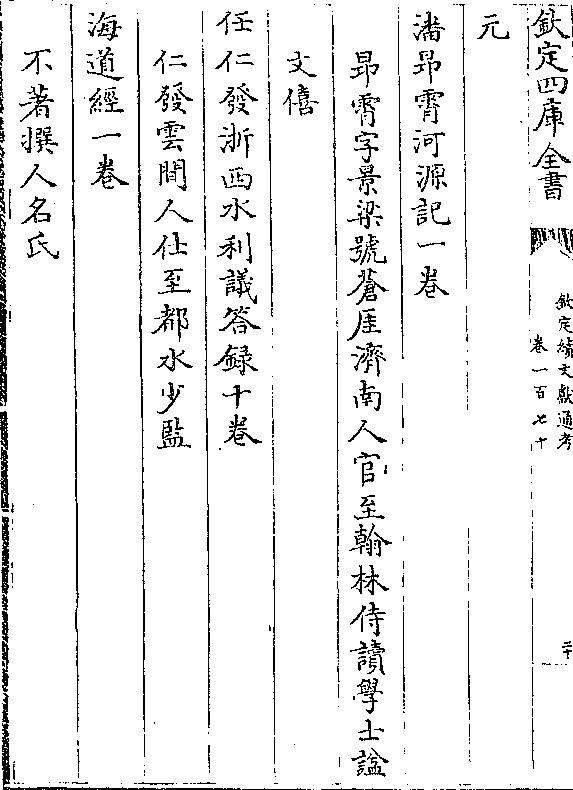 欽定四庫全書
欽定續文獻通考
卷一百七十
二十
元
潘昻霄河源記一卷
昻霄字景梁號蒼厓濟南人官至翰林侍讀學士諡
文僖
任仁發浙西水利議答録十卷
仁發雲間人仕至都水少監
海道經一卷
不著撰人名氏